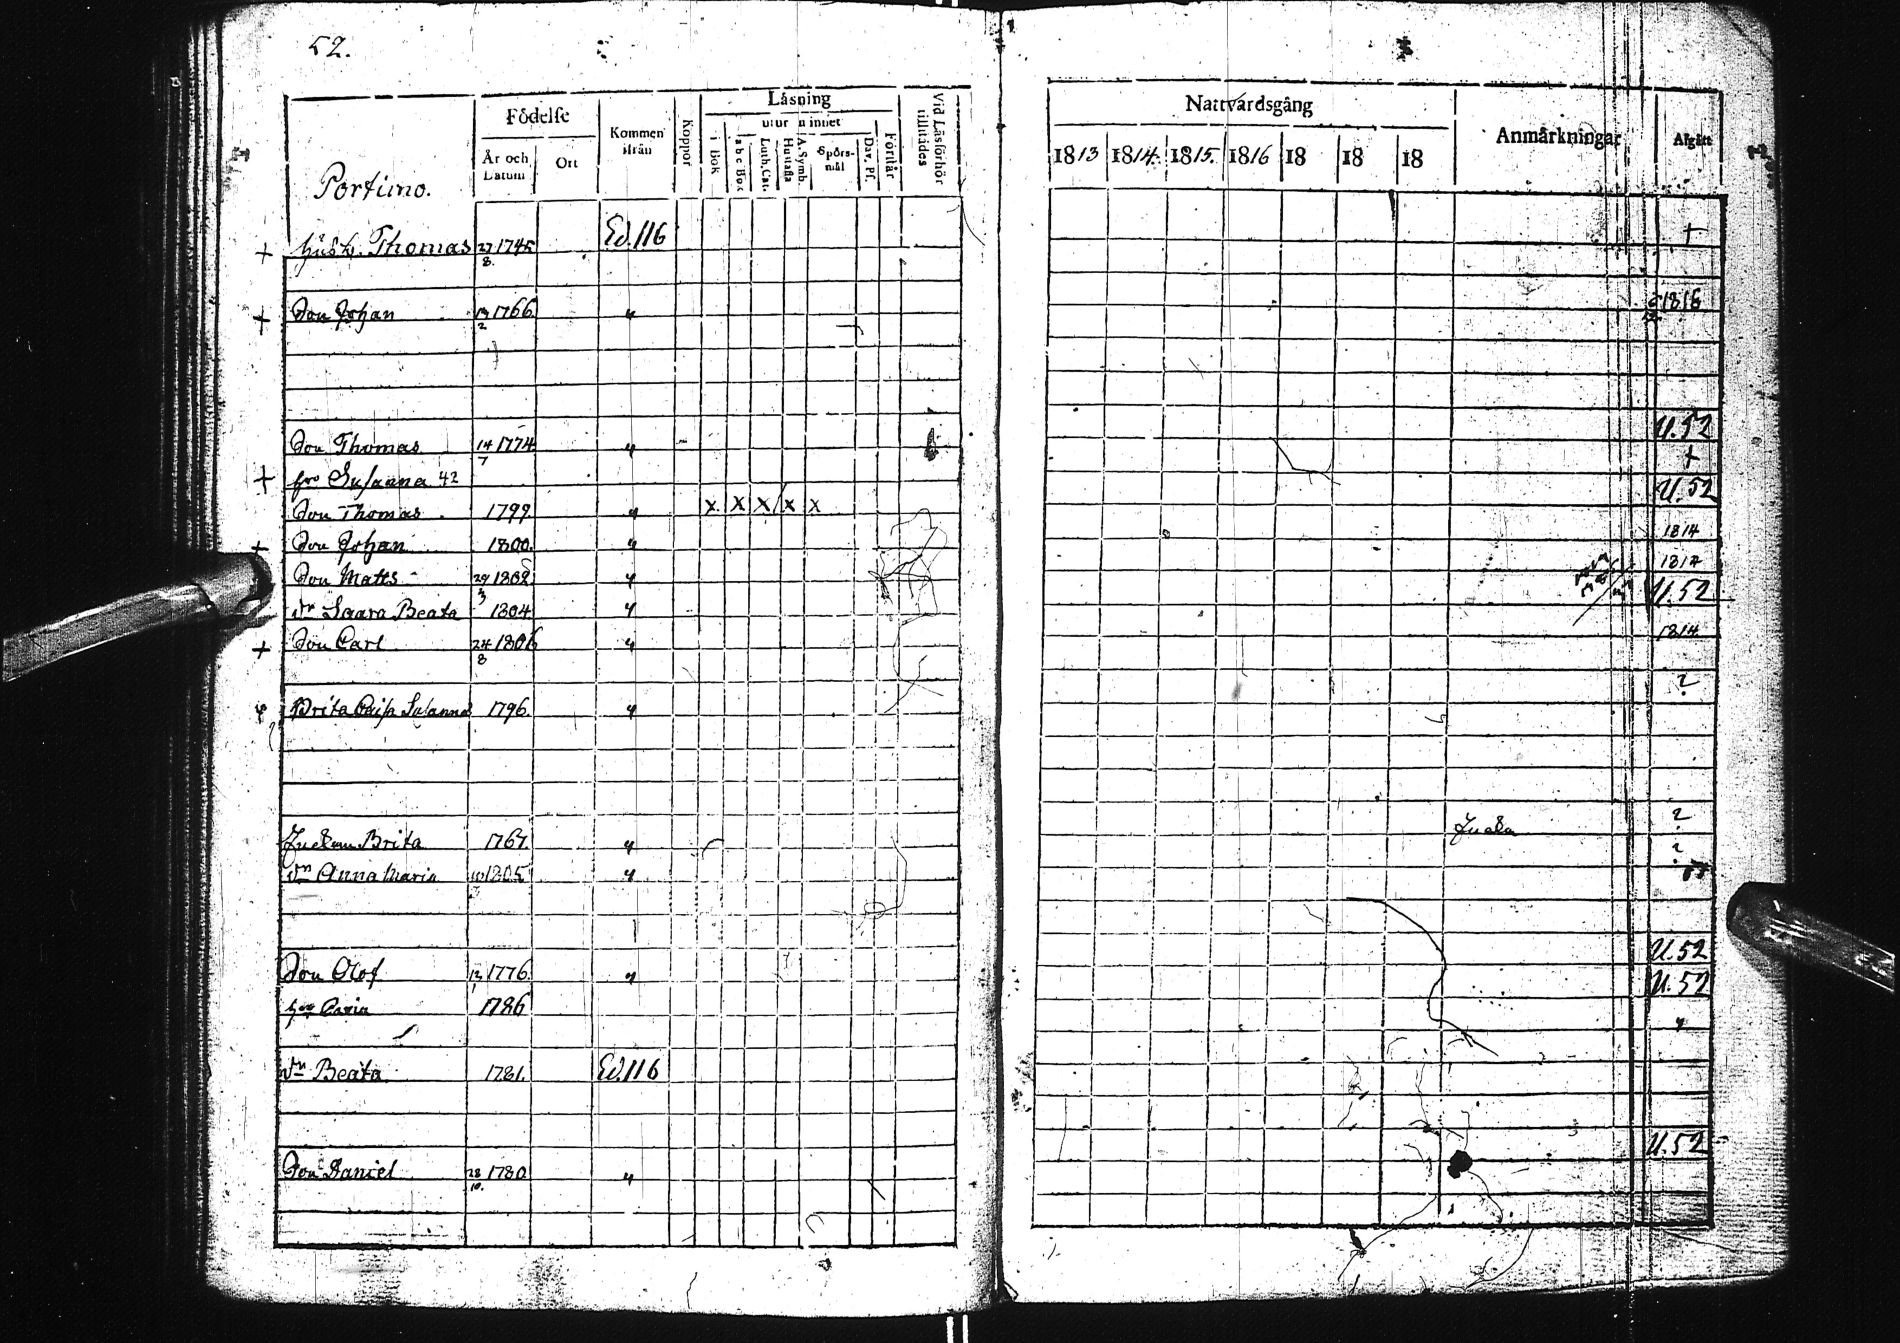 52.
Födelse
Kommen ifrån
Koppor
Läsning
utur minnet
i Bok
a b c Bok
Luth. Cat.
Hustafla
A. Symb.
Spörsmål
Dav. Ps.
Förstår
Vid Läsförhör tillstädes
År och Datum
Ort
Portimo.
Nattvardsgång
Anmärkningar
Afgått
1813 1814. 1815. 1816 18 18 18
+ Husb. Thomas 27/8. 1745 Ed. 116 +
+ Son Johan 13/2 1766. " 1816
Son Thomas 14/7 1774 " U. 52
+ hro Susanna 42 +
Son Thomas. 1799 " x x x x x U. 52
+ Son Johan 1800. " 1814
Son Matts 29/3 1802 " 1814
dr Saara Beata 1804. " U. 52
+ Son Carl 24/8 1806 " 1814
Brita Caisa Susanna 1796. " ?
Brita 1767. " ?
dr Anna Maria 1805 " ?
Son Olof 13/1 1776. " U. 52
1786 U. 52
"
dr Beata 1781. Ed. 116
Son Daniel 28/10. 1780. " U. 52